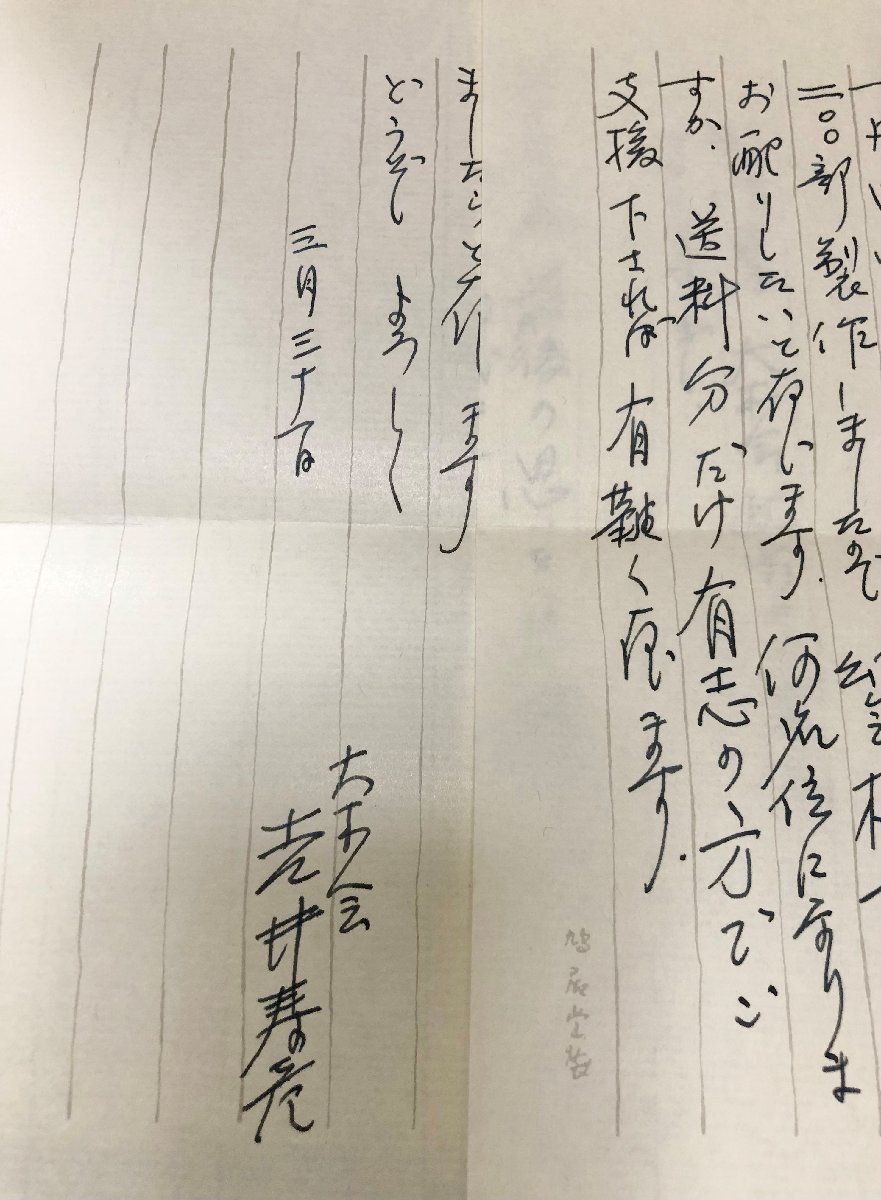 二〇〇部製作しましたので
お配りしたいと存じます。何名位になりま
すか、送料分だけ有志の方でご
支援下されば有難く存じます。
鳩居堂製
ましたらと存じます
どうぞ よろしく
三月三十一日
大木会
吉井寿